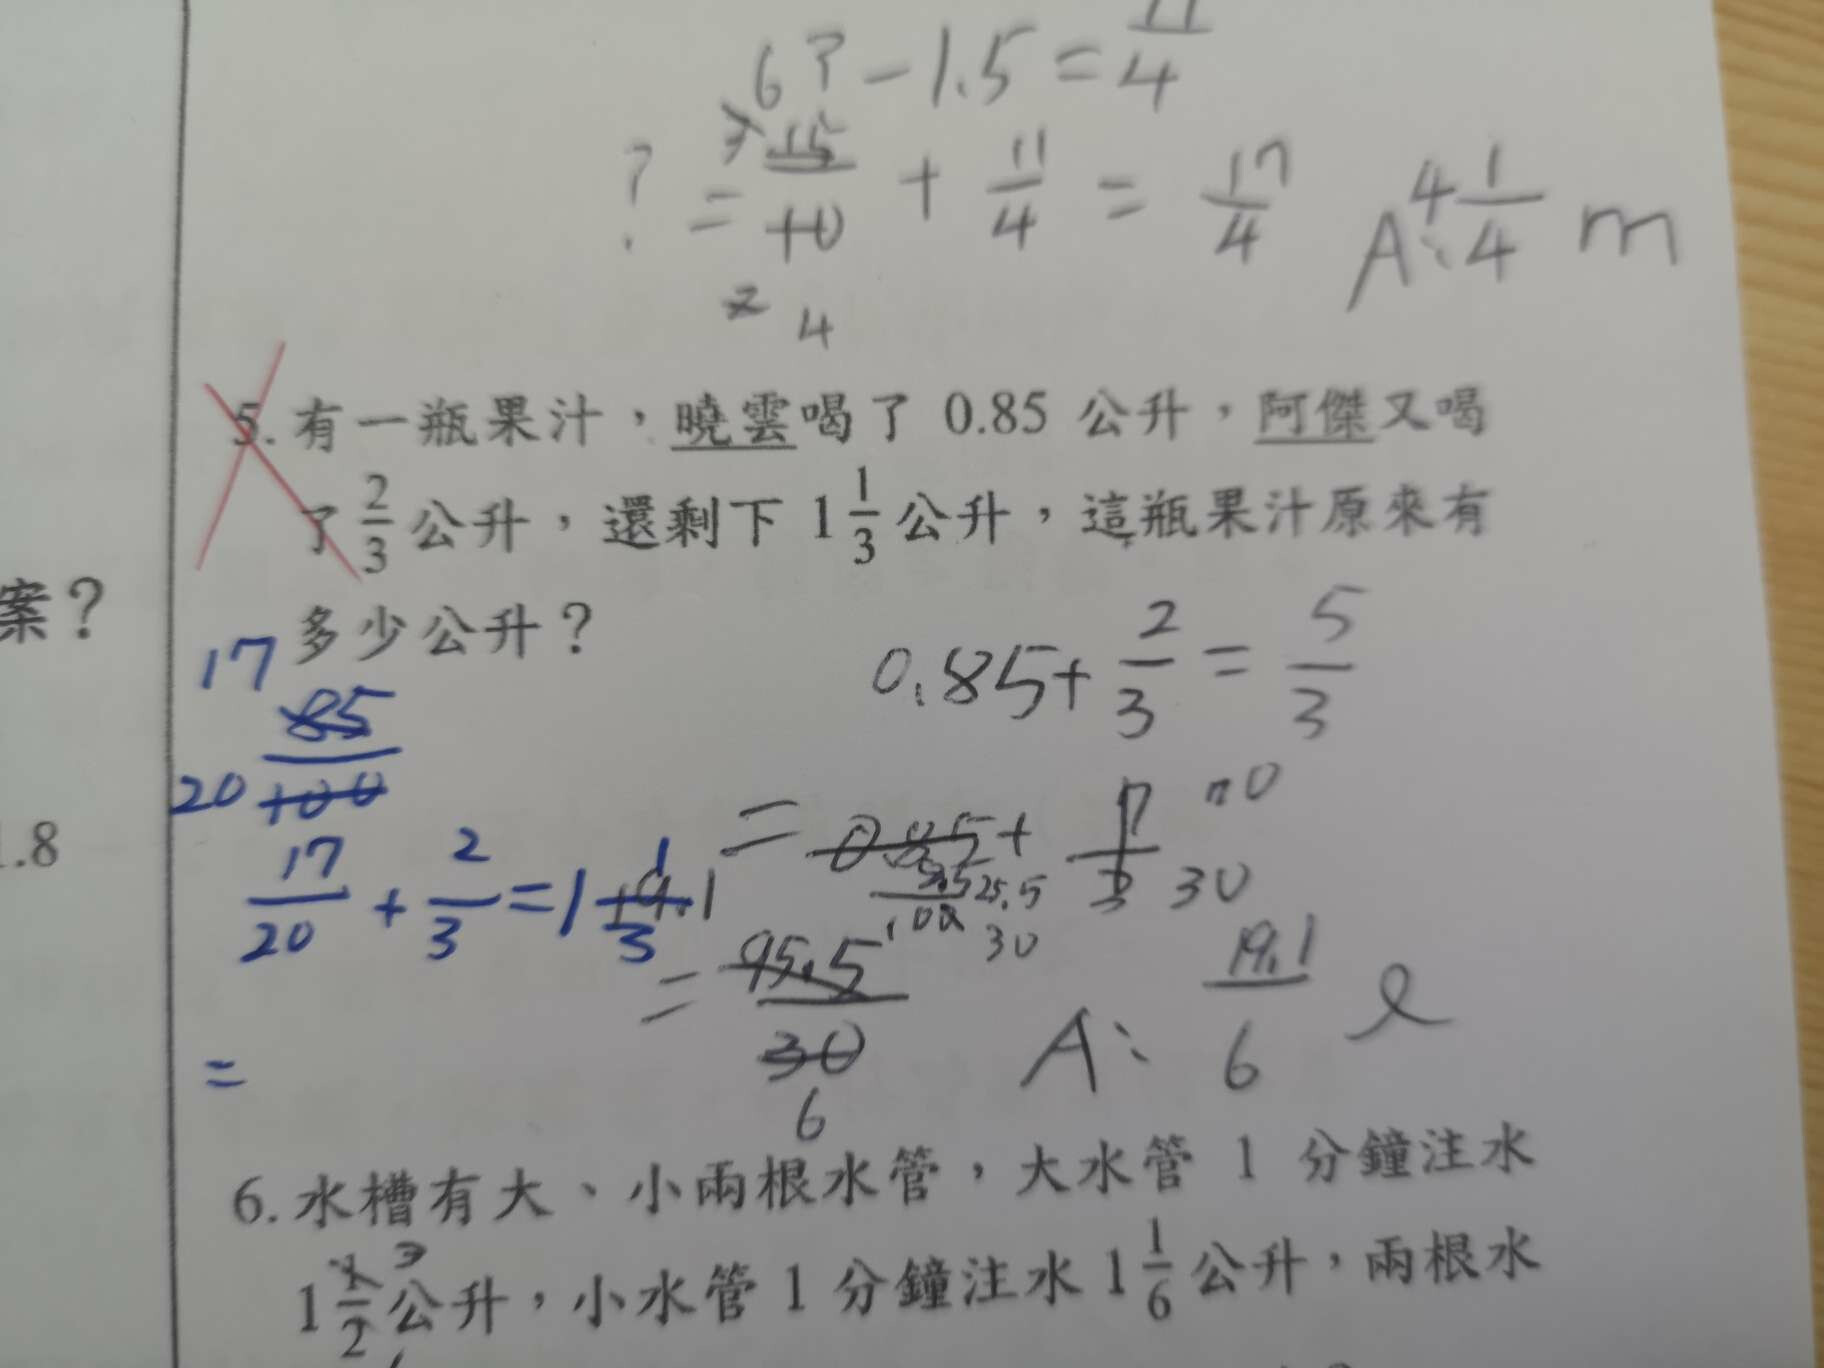 6? - 1.5 = 11/4
? = 15/10 + 11/4 = 17/4 A: 4 1/4 m
2 4
5. 有一瓶果汁，曉雲喝了 0.85 公升，阿傑又喝
了 2/3 公升，還剩下 1 1/3 公升，這瓶果汁原來有
案？
多少公升？
0.85 + 2/3 = 5/3
17 85
20 100
.8
17/20 + 2/3 = 1 1/3
30
25.5
30
= 95.5
30
6
A: 19.1/6 ℓ
=
6. 水槽有大、小兩根水管，大水管 1 分鐘注水
1 1/2 公升，小水管 1 分鐘注水 1 1/6 公升，兩根水